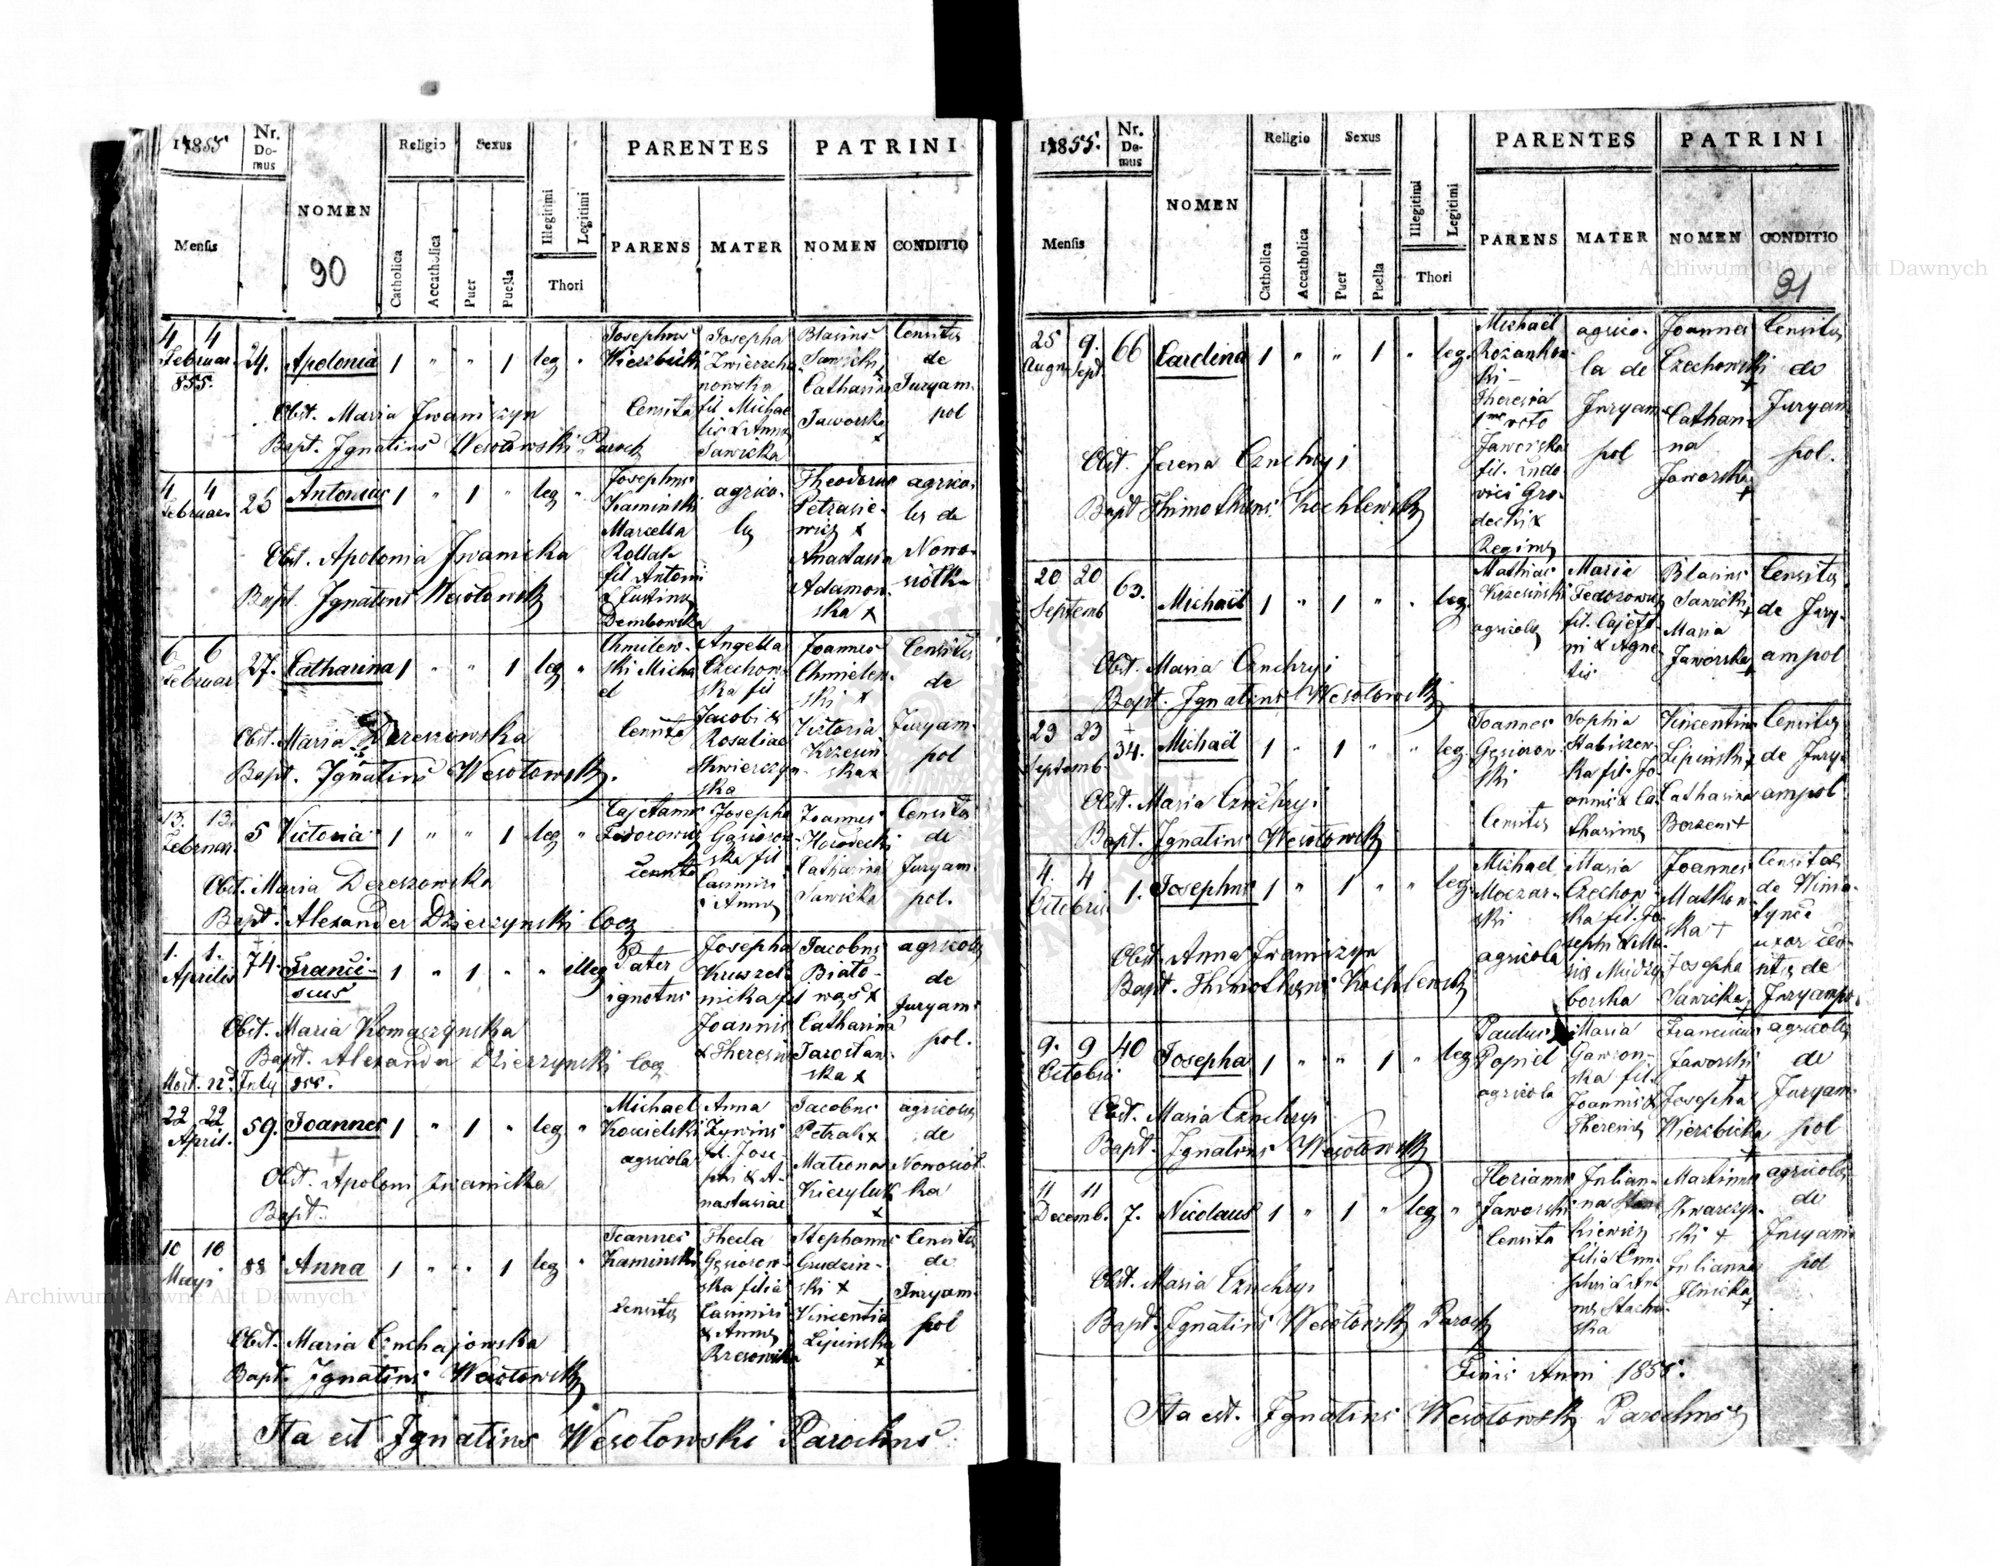 1855
Nr. Domus
NOMEN
Religio
Sexus
PARENTES
PATRINI
Mensis
Catholica
Accatholica
Puer
Puella
Illegitimi
Legitimi
Thori
PARENS
MATER
NOMEN
CONDITIO
90
4 4
Februar.
855.
24.
Apolonia
1 " " 1 leg "
Josephus
Wierzbicki
Censita
Josepha
Zwierzcha
nowska
fil Michae
lis & Anna
Sawicka
Blasius
Sawicki
Catharina
Jaworska
x
Censitus
de
Juryam-
pol
Obst. Maria Iwaniszyn
Bapt. Ignatius Wesołowski Paroch
4 4
Februar.
25
Antonius
1 " 1 " leg "
Josephus
Kaminski
Marcella
fil Antoni
& Justina
Dembowska
agrico-
Theodorus
Petrasie-
wicz x
Anastasia
Adamow-
ska x
agrico-
de
Nowo-
siołka
Obst. Apolonia Iwanicka
Bapt. Ignatius Wesołowski
6 6
Februar
27.
Catharina
1 " " 1 leg "
Chmilew-
ski Micha
el
Censita
Angella
Czechow-
ska fil
Jacobi &
Rosaliae
Skwierczyn-
ska
Joannes
Chmielew-
ski x
Victoria
Krzesin-
ska x
Censitus
de
Juryam-
pol
Obst. Maria Dereszowska
Bapt. Ignatius Wesołowski.
13. 13.
Februar.
5
Victoria
1 " " 1 leg "
Cajetanus
Fedorowicz
Censita
Josepha
Gąsiorow-
ska fil
Casimiri
& Anna
Joannes
Horodecki
Catharina
Sawicka
Censita
de
Juryam-
pol.
Obst. Maria Dereszowska
Bapt. Alexander Dzierzynski Coop
1. 1.
Aprilis
74.
Franci-
scus
1 " 1 " " illeg
Pater
ignotus
Josepha
Kruszel-
nicka fil
Joannis
& Theresia
Jacobus
Biało-
wąs x
Catharina
Jarosław-
ska x
agricola
de
Juryam-
pol.
Obst. Maria Komaszynska
Bapt. Alexander Dzierzynski Coop
Mort. 12a July 855.
22 22
April.
59.
Joannes
1 " 1 " leg "
Michael
Koscielski
agricola
Anna
Zywins
fil. Jose-
phi & A-
nastasiae
Jacobus
Petrak x
Matrona
Kieryluk
x
agricola
de
Nowosioł-
ka
Obst. Apoloni Iwanicka
Bapt.
10 10
Mayi
88
Anna
1 " " 1 leg "
Joannes
Kaminski
Censitus
Thecla
Gąsiorow-
ska filia
Casimiri
& Anna
Brzesowska
Stephanus
Grudzin-
ski x
Vincentia
Lipinska
x
Censitus
de
Juryam-
pol
Obst. Maria Czuchajowska
Bapt. Ignatius Wesołowski
Ita est Ignatius Wesołowski Parochus
1855.
Nr. Domus
NOMEN
Religio
Sexus
PARENTES
PATRINI
Mensis
Catholica
Accatholica
Puer
Puella
Illegitimi
Legitimi
Thori
PARENS
MATER
NOMEN
CONDITIO
91
25 9.
Augu Sept.
66
Carolina
1 " " 1 " leg.
Michaël
Rożankow-
ski -
Theresia
voto
Jaworska
fil. Ludo
vici Gro-
decki &
Regina
agrico-
la de
Juryam-
pol
Joannes
Czechowski
+
Cathari-
na
Jaworska
+
Censitus
de
Juryam-
pol.
Obst. Jerena Czuchryj
Bapt Thimotheus Kochlewski
20 20
Septemb
63.
Michaël
1 " 1 " " leg.
Mathias
Krzesinski
agricola
Maria
Fedorowicz
fil. Cajeta
ni & Agne-
tis
Blasius
Sawicki +
Maria
Jaworska +
Censitus
de Jury-
ampol
Obst. Maria Czuchryj
Bapt. Ignatius Wesołowski
23 23
Septemb
34.
Michaël
1 " 1 " " leg.
Joannes
Gąsiorow-
ski
Censitus
Sophia
Stabiszew-
ka fil. Jo-
annis & Ca-
tharina
Vincentius
Lipinski +
Catharina
Borzens +
Censitus
de Jury-
ampol
Obst. Maria Czuchryj
Bapt. Ignatius Wesołowski
4. 4
Octobris
1.
Josephus
1 " 1 " " leg.
Michael
Moczar-
ski
agricola
Maria
Czechow-
ska fil. Jo-
sephi & Ma-
ria Miedzy-
borska
Joannes
Matkow-
ska +
Josepha
Sawicka +
Censitae
de Winia-
tynce
uxor Cen-
sitae de
Juryampo.
Obst. Anna Iwaniszyn
Bapt. Thimotheus Kochlewski
9. 9
Octobris
40
Josepha
1 " " 1 " leg.
Paulus
Popiel
agricola
Maria
Gawron-
ska fil.
Joannis &
Theresia
Franciscus
Jaworski
+
Josepha
Wierzbicka
+
agricola
de
Juryam-
pol
Obst. Maria Czuchryj
Bapt. Ignatius Wesołowski
11 11
Decemb.
7.
Nicolaus
1 " 1 " leg "
Florianus
Jaworski
Censita
Julian-
na
kiewicz
filia Ono-
phrii & An-
na Stacho-
ska
Martinus
Skwarczyn-
ski +
Julianna
Ilnicka
+
agricola
de
Juryam-
pol
Obst. Maria Czuchryj
Bapt. Ignatius Wesołowski Paroch
Finis Anni 1855.
Ita est. Ignatius Wesołowski Parochus
Archiwum Główne Akt Dawnych
Archiwum Główne Akt Dawnych